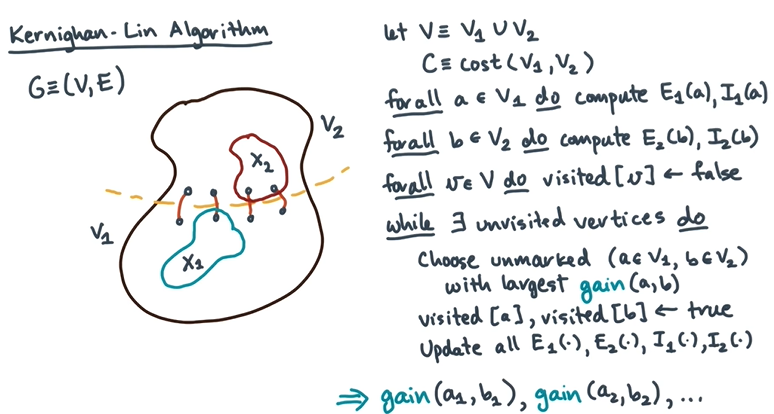 Kernighan-Lin Algorithm
G≡(V,E)
V₂
X₂
V₁
X₁
let V≡ V₁ ∪ V₂
C≡ cost(V₁,V₂)
for all a ∈ V₁ do compute E₁(a), I₁(a)
for all b ∈ V₂ do compute E₂(b), I₂(b)
for all v ∈ V do visited[v] ← false
while ∃ unvisited vertices do
Choose unmarked (a∈V₁, b∈V₂)
with largest gain(a,b)
visited[a], visited[b] ← true
Update all E₁(·), E₂(·), I₁(·), I₂(·)
⇒ gain(a₁,b₁), gain(a₂,b₂), ...